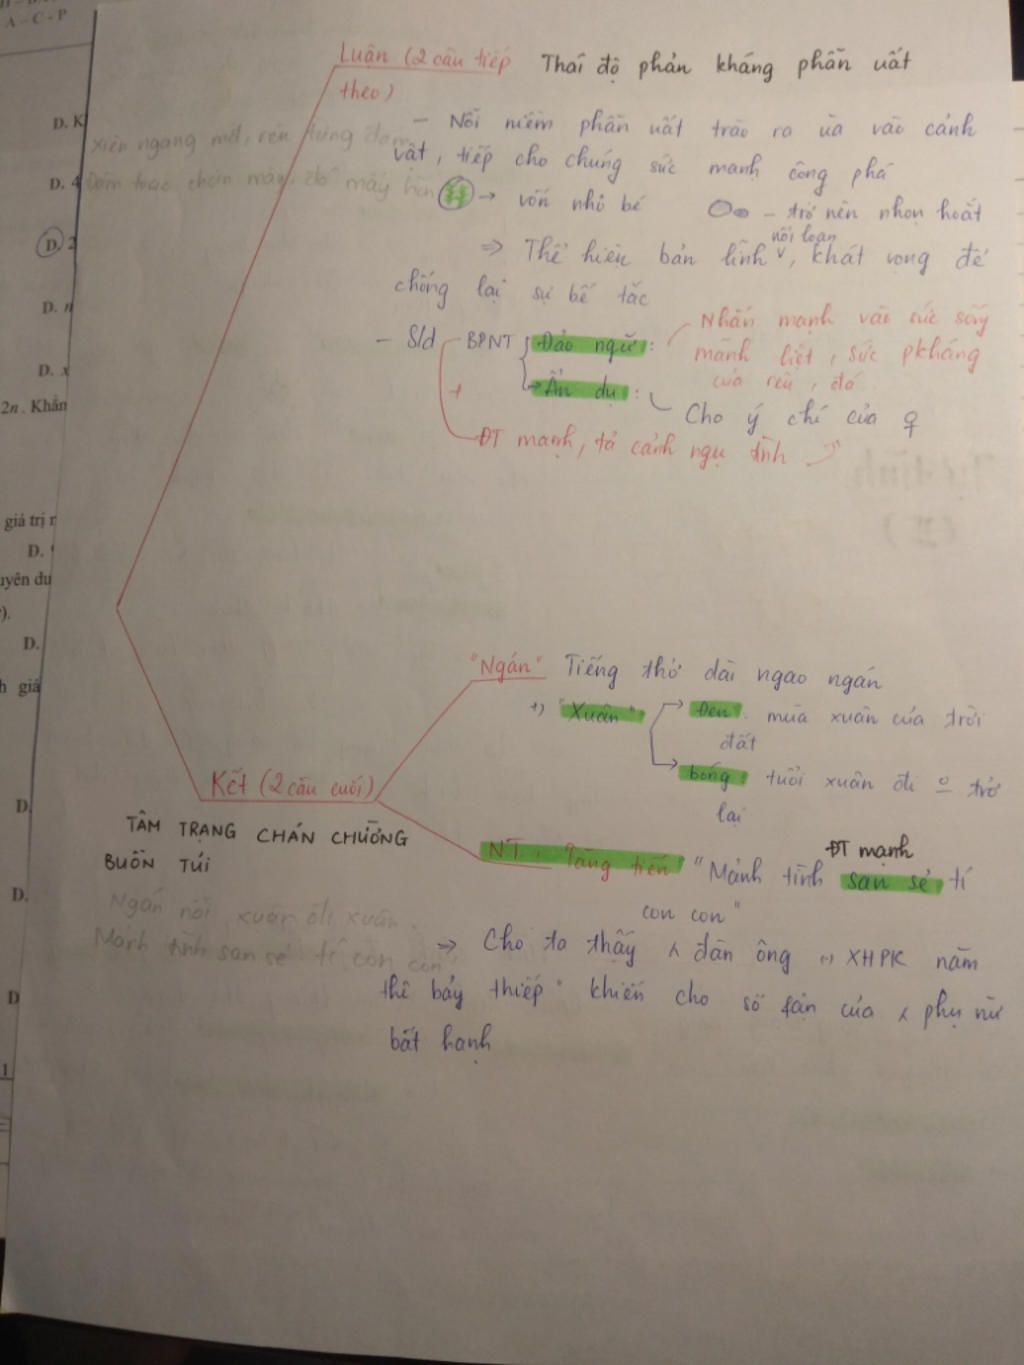 A - C - P
D. K
D. 4
D. 2
D. n
D. x
2n. Khẳn
giá trị r
D.
uyên du
).
D.
h giá
D.
D.
D
1
Luận (2 câu tiếp
theo)
Thái độ phản kháng phẫn uất
xiên ngang mđ, rêu từng đám
Đâm toạc chân mây, đá mấy hòn
- Nỗi niềm phẫn uất trào ra ùa vào cảnh
vật, tiếp cho chúng sức mạnh công phá
→ vốn nhỏ bé - trở nên nhọn hoắt
nổi loạn
⇒ Thể hiện bản lĩnh v, khát vọng để
chống lại sự bế tắc
- S/d BPNT Đảo ngữ: Nhấn mạnh vào sức sống
mãnh liệt, sức pkháng
của rêu, đá
+ → Ẩn dụ: Cho ý chí của ♀
ĐT mạnh, tả cảnh ngụ tình
"Ngán" Tiếng thở dài ngao ngán
+) "Xuân": → Đen: mùa xuân của trời
đất
→ bóng: tuổi xuân đi o trở
lại
Kết (2 câu cuối)
TÂM TRẠNG CHÁN CHƯỜNG
BUỒN TỦI
NT: Tăng tiến "Mảnh tình san sẻ tí
ĐT mạnh
con con"
Ngán nỗi xuân đi xuân
Mảnh tình san sẻ tí con con
⇒ Cho ta thấy đàn ông XHPK năm
thê bảy thiếp" khiến cho số fận của phụ nữ
bất hạnh